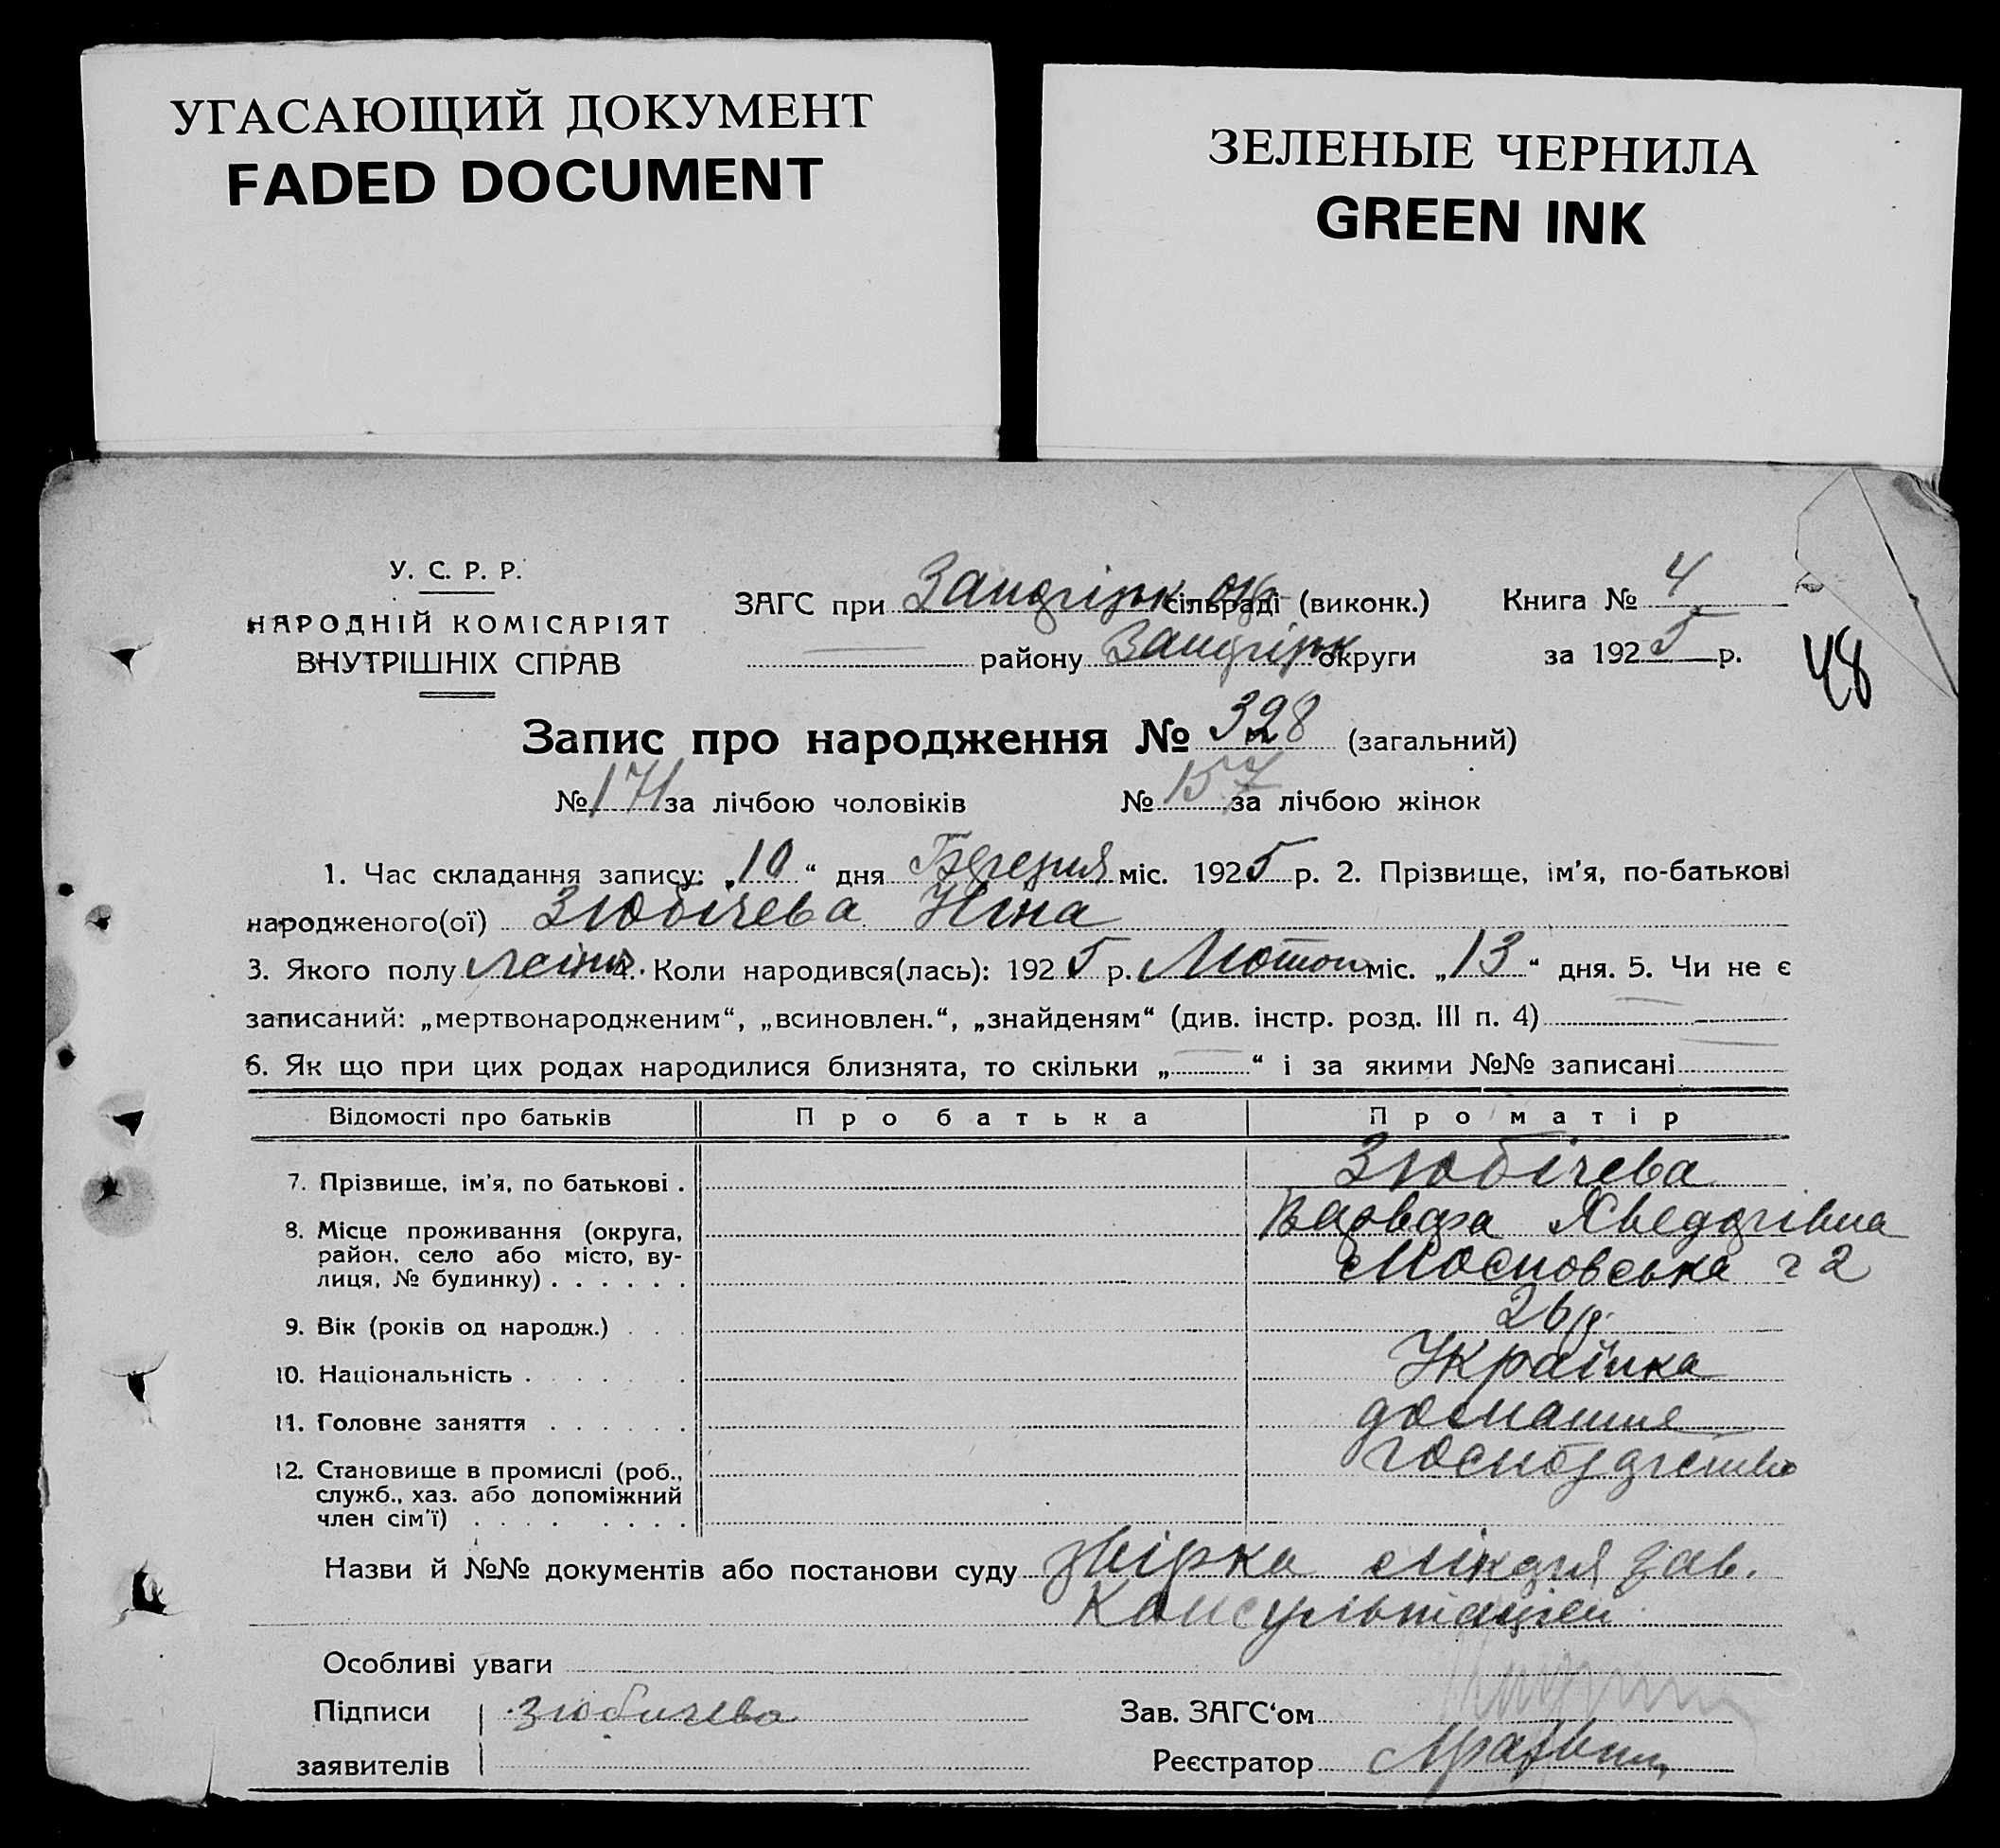 УГАСАЮЩИЙ ДОКУМЕНТ
FADED DOCUMENT
ЗЕЛЕНЫЕ ЧЕРНИЛА
GREEN INK
У. С. Р. Р.
НАРОДНІЙ КОМІСАРІЯТ
ВНУТРІШНІХ СПРАВ
ЗАГС при сільраді (виконк.)
району округи
Книга № 4
за 1925 р.
48
Запис про народження № 328 (загальний)
№ 171 за лічбою чоловіків № 157 за лічбою жінок
1. Час складання запису: „10“ дня Березня міс. 1925 р. 2. Прізвище, ім'я, по-батькові
народженого(ої) Зюбічева Ніна
3. Якого полу 4. Коли народився(лась): 1925 р. Лютого міс. „13“ дня. 5. Чи не є
записаний: „мертвонародженим“, „всиновлен.“, „знайденям“ (див. інстр. розд. III п. 4)
6. Як що при цих родах народилися близнята, то скільки „—“ і за якими №№ записані
Відомості про батьків Про батька Про матір
7. Прізвище, ім'я, по батькові . Зюбічева
8. Місце проживання (округа, Варвара Хведорівна
район, село або місто, ву-
лиця, № будинку) . . . . . . Московська 2
9. Вік (років од народж.) . . . 26 р.
10. Національність . . . . . . . Українка
11. Головне заняття . . . . . . домашнє
12. Становище в промислі (роб., господарство
служб., хаз. або допоміжний
член сім'ї) . . . . . . . .
Назви й №№ документів або постанови суду звірка зав.
Консультацією
Особливі уваги
Підписи Зюбичева Зав. ЗАГС‘ом
заявителів Реєстратор